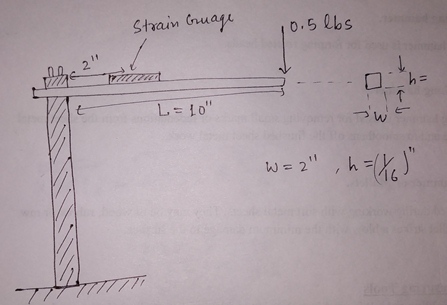 Strain Guage
0.5 lbs
2"
L = 10"
h =
w
w = 2" , h = (1/16)"